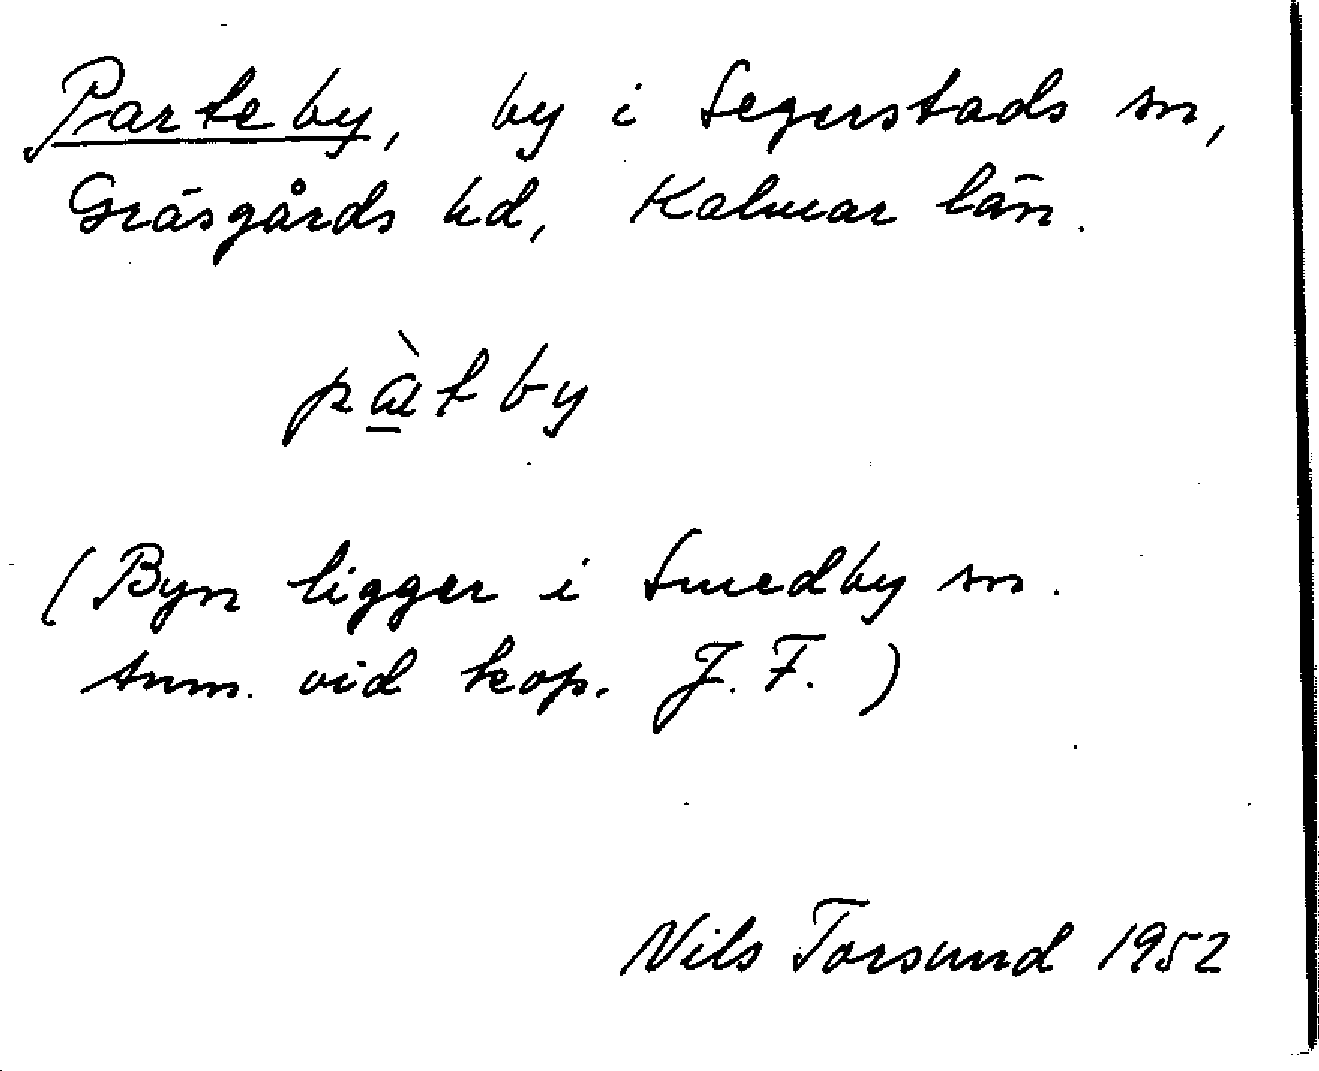 Parteby, by i Segerstads sn,
Gräsgårds hd, Kalmar län.
pàtby
(Byn ligger i Smedby sn.
Anm. vid kop. J. F.)
Nils Torsund 1952